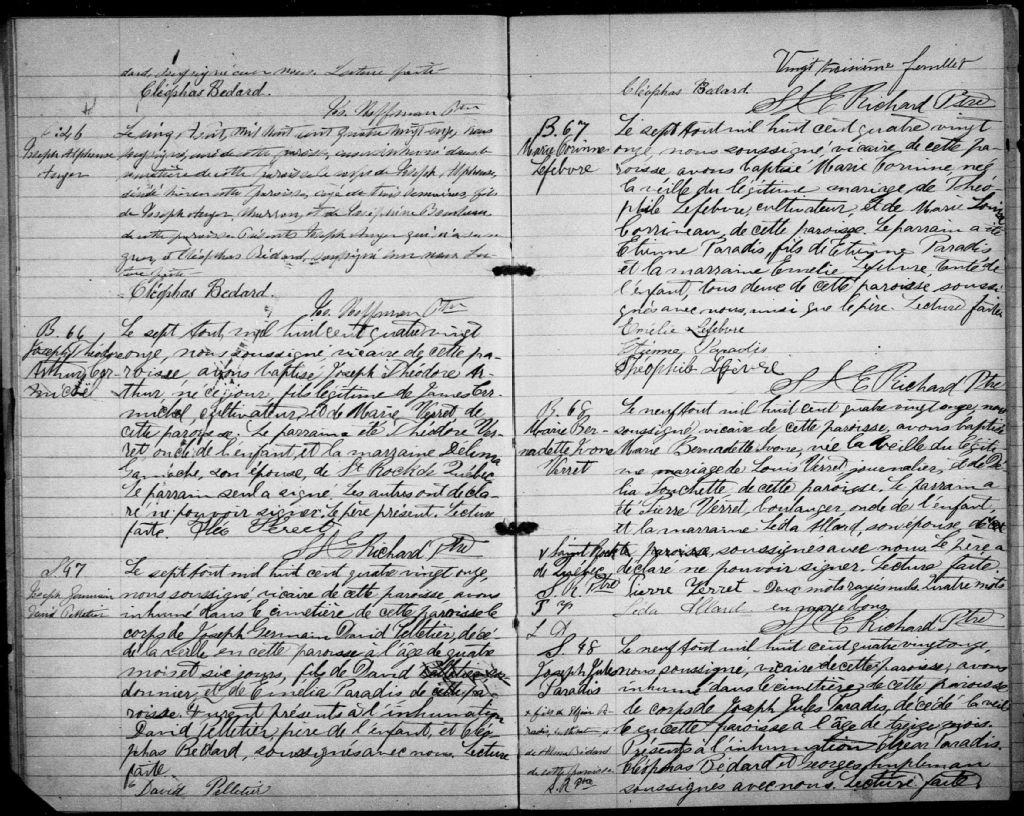 dard, soussigné avec nous. Lecture faite
Cléophas Bedard.
Jos. Hoffman Ptre
S. 46
Joseph Alphonse
Auger
Le cinq Août, mil huit cent quatre vingt onze, nous
soussigné, curé de cette paroisse, avons inhumé dans le
cimetière de cette paroisse le corps de Joseph Alphonse,
décédé hier en cette paroisse, âgé de trois semaines, fils
de Joseph Auger, et de Joséphine
de cette paroisse. Présents Joseph Auger qui n'a su si
gner, et Cléophas Bédard, soussigné avec nous. Lec
ture faite
Cléophas Bedard.
Jos. Hoffman Ptre
B. 66
Joseph Théodore
Arthur Car
michel
Le sept Aout, mil huit cent quatre vingt
onze, nous soussigné, vicaire de cette pa-
roisse avons baptisé Joseph Théodore Ar-
thur, né ce jour, fils légitime de James Car
michel, cultivateur, et de Marie Verret de
cette paroisse. Le parrain a été Théodore Ver
ret oncle de l'enfant, et la marraine Delima
Gamache, son épouse, de St Roch de Québec
Le parrain seul a signé. Les autres ont décla-
ré ne pouvoir signer. Le père présent. Lecture
faite. Théo Verret
J. E. Richard Ptre
S. 47
Joseph Germain
David Pelletier
Le sept Aout mil huit cent quatre vingt onze,
nous soussigné, vicaire de cette paroisse avons
inhumé dans le cimetière de cette paroisse le
corps de Joseph Germain David Pelletier, décé
dé la veille en cette paroisse à l'âge de quatre
mois et six jours, fils de David Pelletier cor-
donnier, et de Emelia Paradis de cette pa-
roisse. Furent présents à l'inhumation
David Pelletier père de l'enfant, et Cléo
phas Bédard, soussignés avec nous. Lecture
faite.
David Pelletier
Vingt troisième feuillet
Cléophas Bedard
J. E. Richard Ptre
B. 67
Marie Corinne
Lefebvre
Le sept Aout mil huit cent quatre vingt
onze, nous soussigné vicaire, de cette pa-
roisse avons baptisé Marie Corinne, née
la veille du légitime mariage de Théo-
phile Lefebvre, cultivateur, et de Marie Louise
Corriveau, de cette paroisse. Le parrain a été
Etienne Paradis, fils de Etienne Paradis
et la marraine Emélie Lefebvre, tante de
l'enfant, tous deux de cette paroisse soussi-
gnés avec nous, ainsi que le père. Lecture faite
Emélie Lefebvre
Etienne Paradis
Theophile Lefevre
J. E. Richard Ptre
B. 68
Marie Ber-
nadette Yvonne
Verret
Le neuf Aout mil huit cent quatre vingt onze, nous
soussigné, vicaire de cette paroisse, avons baptisé
Marie Bernadette Yvonne, née la veille du légiti
me mariage de Louis Verret, journalier, et de Dé
lia Touchette de cette paroisse. Le parrain a
été Pierre Verret, boulanger, oncle de l'enfant,
et la marraine Léda Allard, son épouse, de
paroisse, soussignés avec nous. Le père a
déclaré ne pouvoir signer. Lecture faite.
x Saint Roch
de Québec
J. E. R. Ptre
P V
L D
Pierre Verret - Deux mots rayés nuls. Quatre mots
Léda Allard en marge bons
J. E. Richard Ptre
S. 48
Joseph Jules
Paradis
x fils de Elzéar Pa-
radis
de Bédard
de cette paroisse
J. R. Ptre
Le neuf Aout mil huit cent quatre vingt onze,
nous soussigné, vicaire de cette paroisse, avons
inhumé dans le cimetière de cette paroisse
le corps de Joseph Jules Paradis, décédé la veil
le en cette paroisse à l'âge de treize mois.
Présents à l'inhumation Elzéar Paradis.
Cléophas Bédard et Georges
soussignés avec nous. Lecture faite